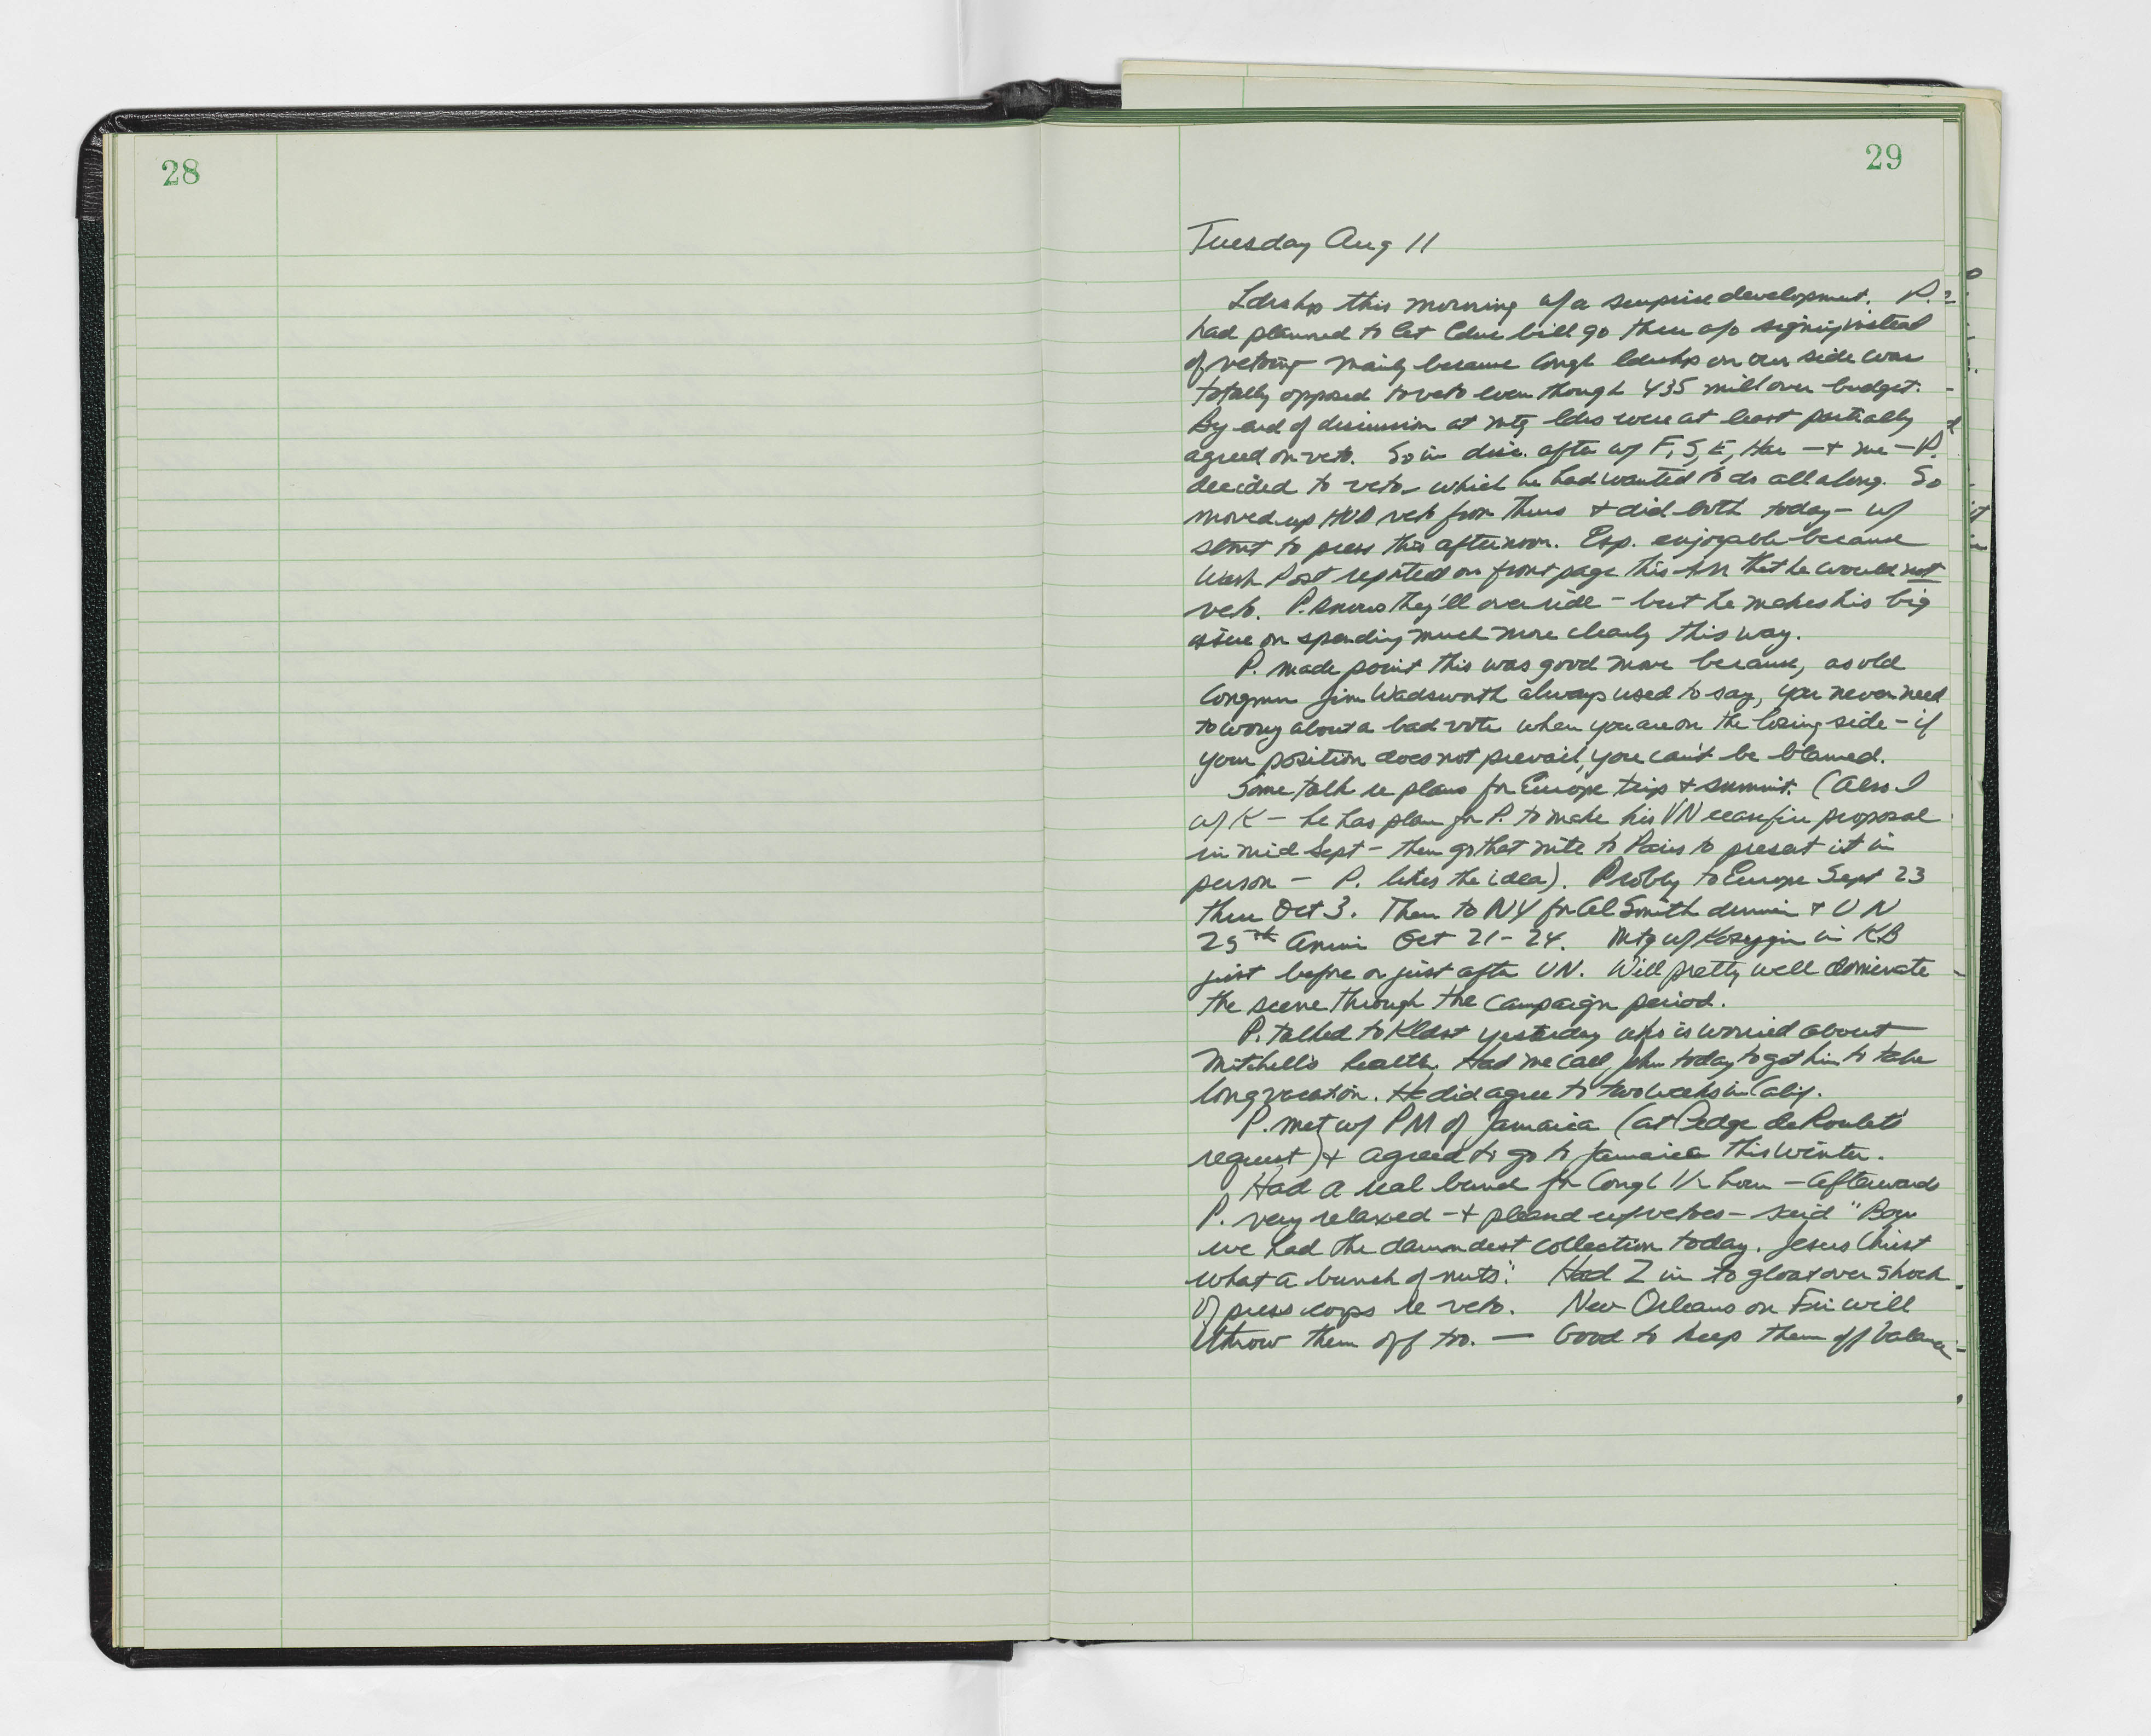 28
29
Tuesday Aug 11
Ldrshp this morning w/a surprise development. P.
had planned to let Educ bill go thru w/o signing instead
of vetoing mainly because Congl ldrshp on our side was
totally opposed to veto even though 435 mill over budget.
By end of discussion at mtg ldrs were at least partially
agreed on veto. So in disc. after w/ F, S, E, Har — + me — P.
decided to veto - which he had wanted to do all along. So
moved up HUD veto from Thurs + did both today - w/
stmt to press this afternoon. Esp. enjoyable because
Wash Post reported on front page this AM that he would not
veto. P. knows they'll override - but he makes his big
issue on spending much more clearly this way.
P. made point this was good move because, as old
Congrmn Jim Wadsworth always used to say, you never need
to worry about a bad vote when you are on the losing side - if
your position does not prevail, you can't be blamed.
Some talk re plans for Europe trip + summit. (Also I
w/ K - he has plan for P. to make his VN ceasefire proposal
in mid Sept - then go that nite to Paris to present it in
person - P. likes the idea). Probly to Europe Sept 23
thru Oct 3. Then to NY for Al Smith dinner + UN
25th Anniv Oct 21-24. Mtg w/ Kosygin in KB
just before or just after UN. Will pretty well dominate
the scene through the campaign period.
P. talked to Kldst yesterday who is worried about
Mitchell's health. Had me call John today to get him to take
long vacation. He did agree to two weeks in Calif.
P. met w/ PM of Jamaica (at Pedge de Roulet's
request) + agreed to go to Jamaica this winter.
Had a real bunch for Congl 1/2 hour - afterwards
P. very relaxed - + pleased w/ vetoes - said "Boy
we had the damndest collection today. Jesus Christ
what a bunch of nuts." Had Z in to gloat over shock
of press corps re veto. New Orleans on Fri will
throw them off too. — Good to keep them off balance